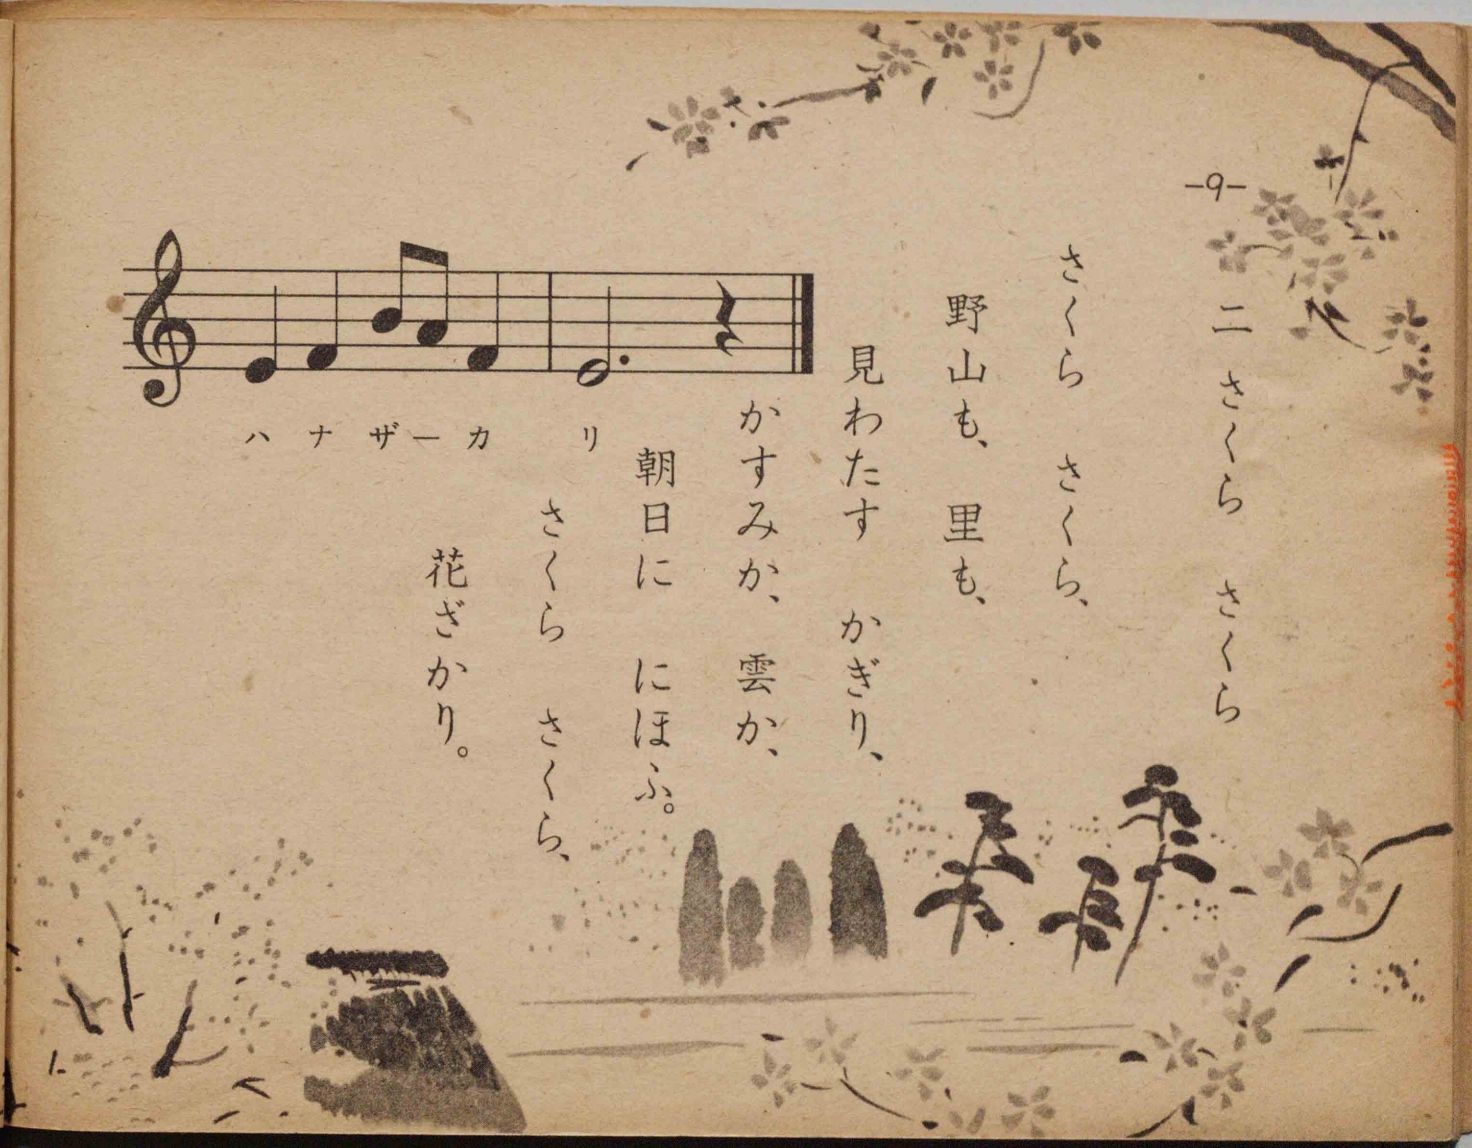 -9-
二 さくら さくら
さくら さくら、
野山も、里も、
見わたす かぎり、
かすみか、雲か、
朝日に にほふ。
さくら さくら、
花ざかり。
ハ ナ ザ ー カ リ